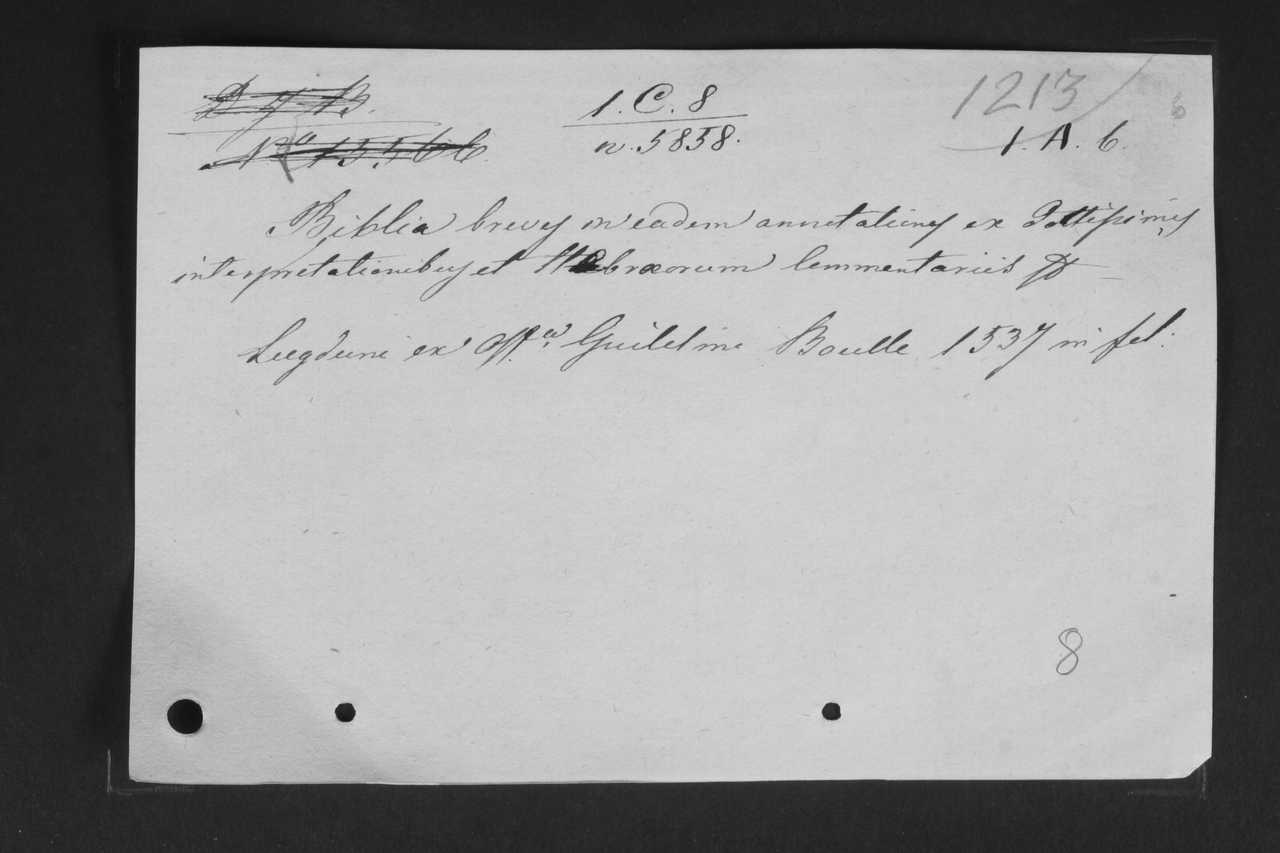 D y B.
1.C.8
1213
6
No 15.566
n. 5858.
1. A. 6.
Biblia breves in eadem annotationes ex Dottissimis
interpretationibus et Hebræorum Commentariis &
Lugduni ex Offa. Guilelmi Boulle 1537 in fol:
8